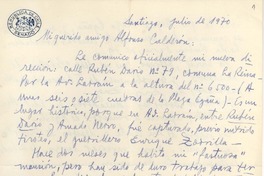 REPUBLICA DE CHILE
SENADO
Santiago, julio de 1970
Mi querido amigo Alfonso Calderón:
Le comunico oficialmente mi nueva di
rección: calle Rubén Darío Nº 79, comuna La Reina.
Por la Av. Larraín a la altura del nº 6.500 - (A
unas seis o siete cuadras de la Plaza Egaña) - Es un
lugar histórico, porque en Av. Larraín, entre Rubén
Darío y Amado Nervo, fue capturado, previo nutrido
tiroteo, el guerrillero Enrique Zorrilla -
Hace dos meses que habito mi "fastuosa"
mansión, pero hay sido de duro trabajo para ter